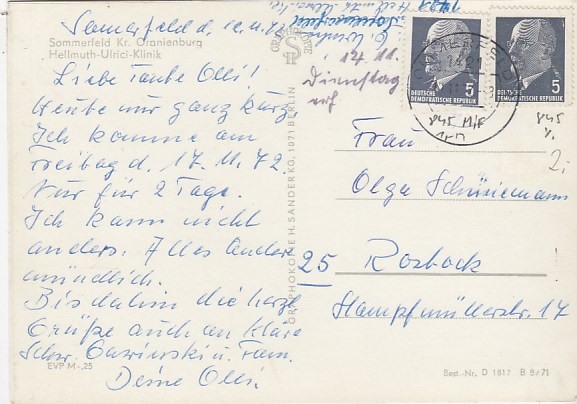 Sommerfeld d.
Sommerfeld Kr. Oranienburg
Hellmuth-Ulrici-Klinik
Liebe Tante Olli!
Heute nur ganz kurz.
Ich komme am
Freitag d. 17. 11. 72.
Nur für 2 Tage.
Ich kann nicht
anders. Alles andere
mündlich.
Bis dahin die herzl.
Grüße auch an Klara
Schw. u. Fam.
Deine Olli.
EVP M -,25
ORIG.-PHOTOKOPIE H. SANDER KG, 1071 BERLIN
14. 11.
Dienstag
5
DEUTSCHE
DEMOKRATISCHE REPUBLIK
5
DEUTSCHE
DEMOKRATISCHE REPUBLIK
845
845
2,-
Frau
Olga Schünemann
25 Rostock
Stampfmüllerstr. 17
Best.-Nr. D 1817 B 8/71